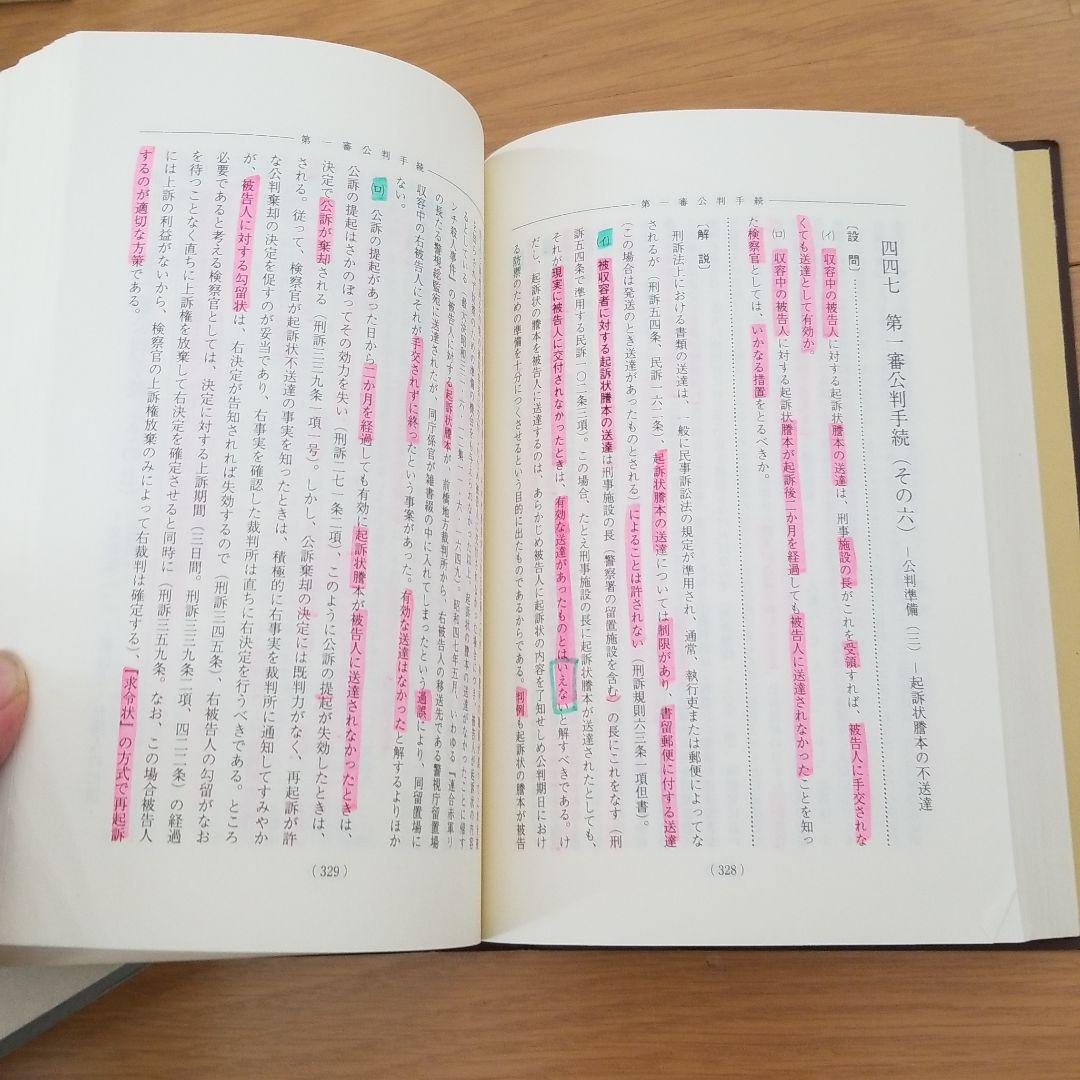 第一審公判手続
四四七　第一審公判手続（その六）―公判準備（三）―起訴状謄本の不送達
〔設問〕
（イ）　収容中の被告人に対する起訴状謄本の送達は、刑事施設の長がこれを受領すれば、被告人に手交されな
くても送達として有効か。
（ロ）　収容中の被告人に対する起訴状謄本が起訴後二か月を経過しても被告人に送達されなかったことを知っ
た検察官としては、いかなる措置をとるべきか。
〔解説〕
刑訴法上における書類の送達は、一般に民事訴訟法の規定が準用され、通常、執行吏または郵便によってな
されるが（刑訴五四条、民訴一六二条）、起訴状謄本の送達については制限があり、書留郵便に付する送達
（この場合は発送のとき送達があったものとされる）によることは許されない（刑訴規則六三条一項但書）。
（イ）　被収容者に対する起訴状謄本の送達は刑事施設の長（警察署の留置施設を含む）の長にこれをなす（刑
訴五四条で準用する民訴一〇二条三項）。この場合、たとえ刑事施設の長に起訴状謄本が送達されたとしても、
それが現実に被告人に交付されなかったときは、有効な送達があったものとはいえないと解すべきである。け
だし、起訴状の謄本を被告人に送達するのは、あらかじめ被告人に起訴状の内容を了知せしめ公判期日におけ
る防禦のための準備を十分につくさせるという目的に出たものであるからである。判例も起訴状の謄本が被告
（328）
第一審公判手続
るとしている
ンチ殺人事件』の被告人に対する起訴状謄本が、前橋地方裁判所から、右被告人の移送先である警視庁留置場
の長たる警視総監宛に送達されたが、同庁係官が雑書綴の中に入れてしまったという過誤により、同留置場に
収容中の右被告人にそれが手交されずに終ったという事案があった。有効な送達はなかったと解するよりほか
ない。
（ロ）　公訴の提起があった日から二か月を経過しても有効に起訴状謄本が被告人に送達されなかったときは、
公訴の提起はさかのぼってその効力を失い（刑訴二七一条二項）、このように公訴の提起が失効したときは、
決定で公訴が棄却される（刑訴三三九条一項一号）。しかし、公訴棄却の決定には既判力がなく、再起訴が許
される。従って、検察官が起訴状不送達の事実を知ったときは、積極的に右事実を裁判所に通知してすみやか
な公判棄却の決定を促すのが妥当であり、右事実を確認した裁判所は直ちに右決定を行うべきである。ところ
が、被告人に対する勾留状は、右決定が告知されれば失効するので（刑訴三四五条）、右被告人の勾留がなお
必要であると考える検察官としては、決定に対する上訴期間（三日間。刑訴三三九条二項、四二二条）の経過
を待つことなく直ちに上訴権を放棄して右決定を確定させると同時に（刑訴三五九条。なお、この場合被告人
には上訴の利益がないから、検察官の上訴権放棄のみによって右裁判は確定する）、『求令状』の方式で再起訴
するのが適切な方策である。
（329）